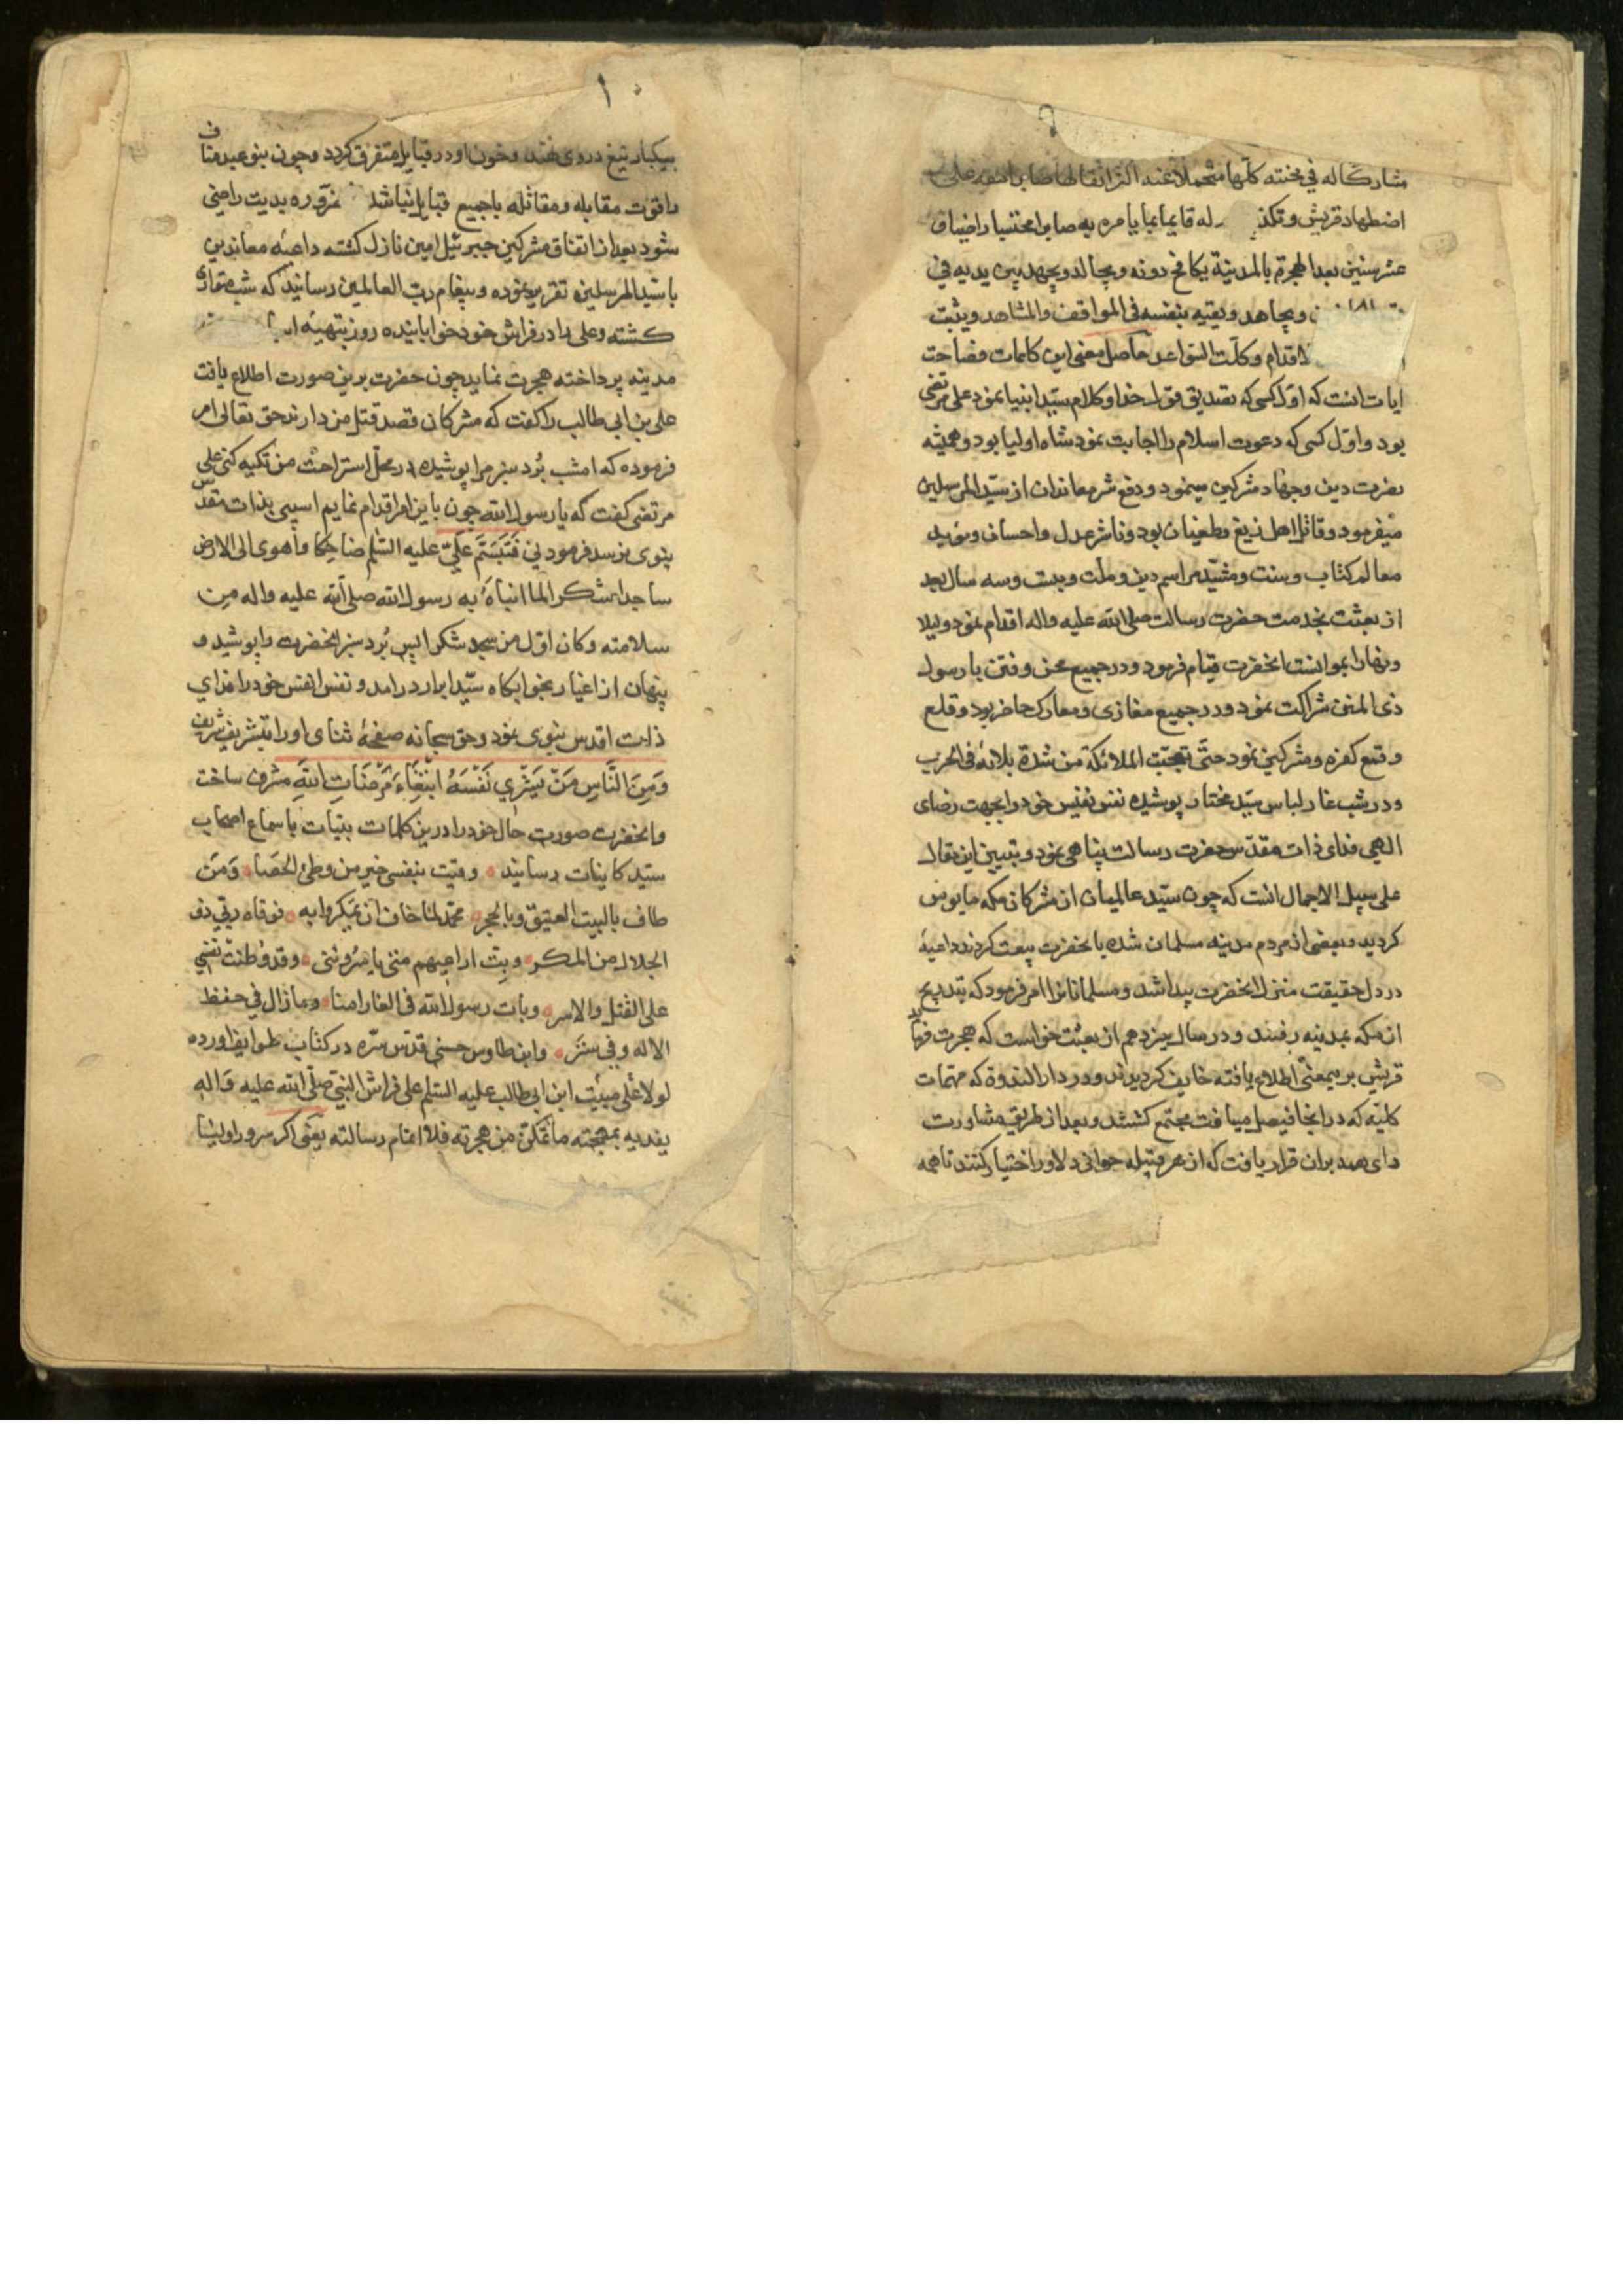 مشارکا له فی محنته کلها متحملا عنه اکثر اثقالها صابرا معه علی
اضطهاد قریش و تکذ له قایما بما یامره به صابرا محتسبا راضیا ف
عشر سنین بعد الهجرة بالمدینة یکافح دونه و یجالد و یجهد بین یدیه فی
و یجاهد و یقیه بنفسه فی المواقف و المشاهد و یثبت
لاقدام و کلت السواعد حاصل معنی این کلمات فصاحت
ایات انست که اول کسی که تصدیق قول خدا و کلام سید انبیا نمود علی مرتضی
بود و اول کسی که دعوت اسلام را اجابت نمود شاه اولیا بود و همیشه
نصرت دین و جهاد مشرکین مینمود و دفع شر معاندان از سید المرسلین
میفرمود و قاتل اهل زیغ و طغیان بود و ناشر عدل و احسان و موید
معالم کتاب و سنت و مشید مراسم دین و ملت و بیست و سه سال بعد
از بعثت بخدمت حضرت رسالت صلی الله علیه و اله اقدام نمود و لیلا
و نهارا بموانست انحضرت قیام فرمود و در جمیع محن و فتن با رسول
ذی المنن شراکت نمود و در جمیع مغازی و معارک حاضر بود و قلع
و قمع کفره و مشرکین نمود حتی تعجبت الملائکة من شدة بلائه فی الحرب
و در شب غار لباس سید مختار پوشیده نفس نفیس خود را بجهت رضای
الهی فدای ذات مقدس حضرت رسالت پناهی نمود و تبیین این مقال
علی سبیل الاجمال انست که چون سید عالمیان از مشرکان مکه مایوس
کردید و بعضی از مردم مدینه مسلمان شده با نحضرت بیعت کردند داعیهٔ
در دل حقیقت منزل انحضرت پیدا شد و مسلمانانرا امر فرمود که بتدریج
از مکه بمدینه رفتند و در سال سیزدهم از بعثت خواست که هجرت فرماید
قریش برینمعنی اطلاع یافته خایف کردیدند و در دار الندوة که مهمات
کلیه که در انجا فیصل مییافت مجتمع کشتند و بعد از طریق مشاورت
رای همه بران قرار یافت که از هر قبیله جوانی دلاور اختیار کنند تا همه
۱۰
بیکبار تیغ در وی نهند و خون او در قبایل متفرق کردد و چون بنو عبد مناف
را قوت مقابله و مقاتله با جمیع قبایل نباشد ره بدیت راضی
شود بعد از اتفاق مشرکین جبرئیل امین نازل کشته داعیه معاندین
با سید المرسلین تقریر نموده و پیغام رب العالمین رسانید که شب متواری
کشته و علی را در فراش خود خوابانیده روز بتهیه
مدینه پرداخته هجرت نماید چون حضرت برین صورت اطلاع یافت
علی بن ابی طالب را کفت که مشرکان قصد قتل من دارند حق تعالی امر
فرموده که امشب برد سبز مرا پوشیده در محل استراحت من تکیه کنی علی
مرتضی کفت که یا رسول الله چون باین امر اقدام نمایم اسیبی بذات مقدس
نبوی نرسد فرمود نی فَتَبَسَّمَ عَلِیّ علیه السلم ضاحکا و اهوی الی الارض
ساجدا شکرا لما انباهُ به رسول الله صلی الله علیه و اله من
سلامته و کان اول من سجد شکرا پس بُرد سبز انحضرت را پوشید و
پنهان از اغیار بخوابکاه سید ابرار درامد و نفس انفس خود را فدای
ذات اقدس نبوی نمود و حق سبحانه صفحهٔ ثنای او را بتشریف شریف
وَمِنَ النَّاسِ مَنْ یَشْرِي نَفْسَهُ ابْتِغَاءَ مَرْضَاتِ اللهِ مشرف ساخت
و انحضرت صورت حال خود را درین کلمات بینات باسماع اصحاب
سید کاینات رسانید ۰ وقیت بنفسی خیر من وطئ الحَصَا ۰ وَمَنْ
طاف بالبیت العتیق و بالحجر ۰ محمد لما خاف ان یَمکروا به ۰ فوقاه ربی ذو
الجلال من المکر ۰ و بِتّ اراعیهم متی یاسروننی ۰ و قد وطنت نفسی
علی القتل و الاسر ۰ و بات رسول الله فی الغار امنا ۰ و ما زال فی حفظ
الاله و فی ستر ۰ و ابن طاوس حسنی قدس سره در کتاب طوایف اورده
لولا علی مبیت ابن ابی طالب علیه السلم علی فراش النبی صلی الله علیه و اله
یفدیه بمهجته ما تمکن من هجرته فلا اتمام رسالته یعنی اکر سرور اولیا